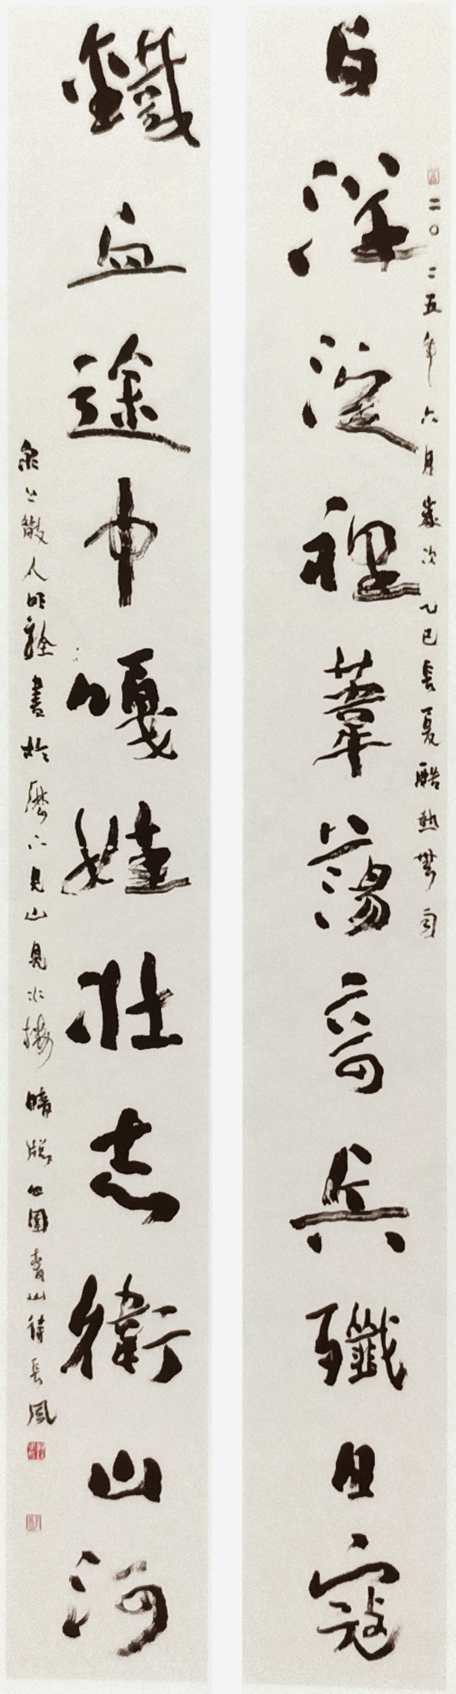 二〇二五年六月歲次乙巳長夏酷熱
白洋淀裡葦蕩奇兵殲日寇
鐵血途中嘎娃壯志衛山河
泉上散人書於歷下見山見水樓晴牕園青山待長風